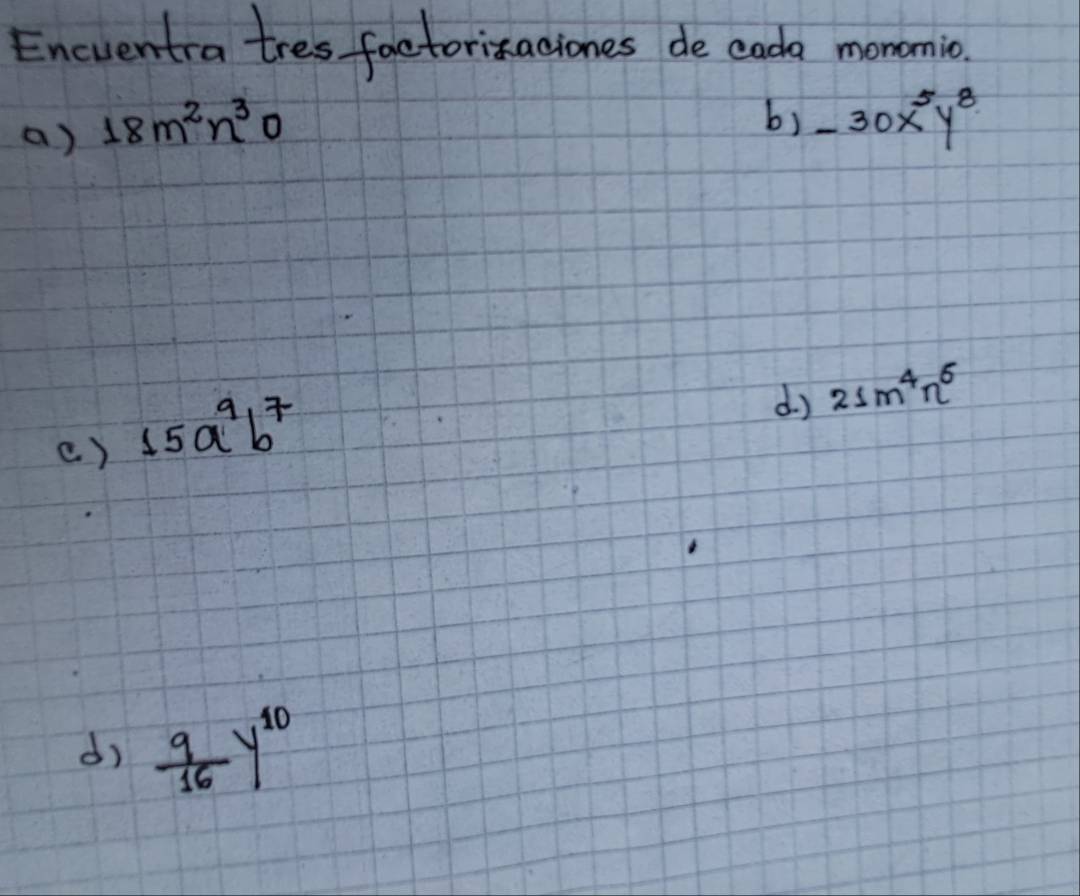 Encuentra tres factorizaciones de cada monomio.
a) 18m²n³o b) -30x⁵y⁸
c) 15a⁹b⁷ d.) 21m⁴n⁶
d) 9/16 y¹⁰